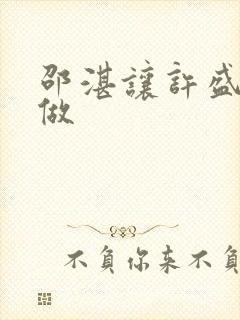 邵湛讓許盛
做
不負你来不負